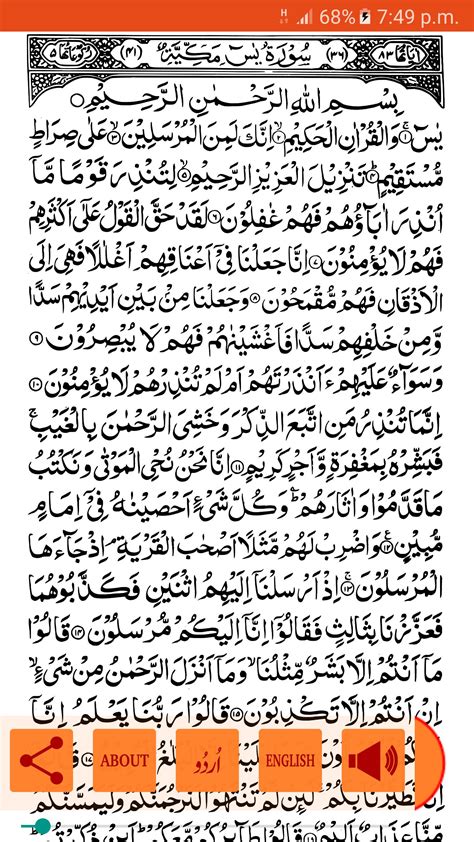 H 68% 7:49 p.m.
اٰیَاتُهَا ٨٣ (٣٦) سُوْرَةُ يٰسٓ مَكِّيَّةٌ (٤١) رُكُوْعَاتُهَا ٥
بِسْمِ اللّٰهِ الرَّحْمٰنِ الرَّحِيْمِ ○
يٰسٓ ۚ﴿١﴾ وَالْقُرْاٰنِ الْحَكِيْمِ ۙ﴿٢﴾ اِنَّكَ لَمِنَ الْمُرْسَلِيْنَ ۙ﴿٣﴾ عَلٰى صِرَاطٍ
مُّسْتَقِيْمٍ ؕ﴿٤﴾ تَنْزِيْلَ الْعَزِيْزِ الرَّحِيْمِ ۙ﴿٥﴾ لِتُنْذِرَ قَوْمًا مَّاۤ
اُنْذِرَ اٰبَآؤُهُمْ فَهُمْ غٰفِلُوْنَ ﴿٦﴾ لَقَدْ حَقَّ الْقَوْلُ عَلٰۤى اَكْثَرِهِمْ
فَهُمْ لَا يُؤْمِنُوْنَ ﴿٧﴾ اِنَّا جَعَلْنَا فِيْۤ اَعْنَاقِهِمْ اَغْلٰلًا فَهِيَ اِلَى
الْاَذْقَانِ فَهُمْ مُّقْمَحُوْنَ ﴿٨﴾ وَجَعَلْنَا مِنْۢ بَيْنِ اَيْدِيْهِمْ سَدًّا
وَّمِنْ خَلْفِهِمْ سَدًّا فَاَغْشَيْنٰهُمْ فَهُمْ لَا يُبْصِرُوْنَ ﴿٩﴾
وَسَوَآءٌ عَلَيْهِمْ ءَاَنْذَرْتَهُمْ اَمْ لَمْ تُنْذِرْهُمْ لَا يُؤْمِنُوْنَ ﴿١٠﴾
اِنَّمَا تُنْذِرُ مَنِ اتَّبَعَ الذِّكْرَ وَخَشِيَ الرَّحْمٰنَ بِالْغَيْبِ ۚ
فَبَشِّرْهُ بِمَغْفِرَةٍ وَّاَجْرٍ كَرِيْمٍ ﴿١١﴾ اِنَّا نَحْنُ نُحْيِ الْمَوْتٰى وَنَكْتُبُ
مَا قَدَّمُوْا وَاٰثَارَهُمْ ؕ وَكُلَّ شَيْءٍ اَحْصَيْنٰهُ فِيْۤ اِمَامٍ
مُّبِيْنٍ ﴿١٢﴾ وَاضْرِبْ لَهُمْ مَّثَلًا اَصْحٰبَ الْقَرْيَةِ ۘ اِذْ جَآءَهَا
الْمُرْسَلُوْنَ ﴿١٣﴾ اِذْ اَرْسَلْنَاۤ اِلَيْهِمُ اثْنَيْنِ فَكَذَّبُوْهُمَا
فَعَزَّزْنَا بِثَالِثٍ فَقَالُوْۤا اِنَّاۤ اِلَيْكُمْ مُّرْسَلُوْنَ ﴿١٤﴾ قَالُوْا
مَاۤ اَنْتُمْ اِلَّا بَشَرٌ مِّثْلُنَا ۙ وَمَاۤ اَنْزَلَ الرَّحْمٰنُ مِنْ شَيْءٍ ۙ
اِنْ اَنْتُمْ اِلَّا تَكْذِبُوْنَ ﴿١٥﴾ قَالُوْا رَبُّنَا يَعْلَمُ اِنَّاۤ
ABOUT
اُردُو
ENGLISH